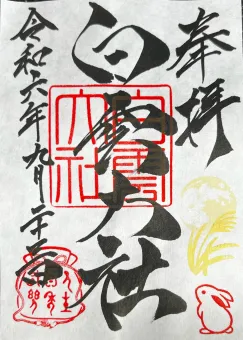 奉拝
白雲大社
令和六年九月二十九日
白雲大社